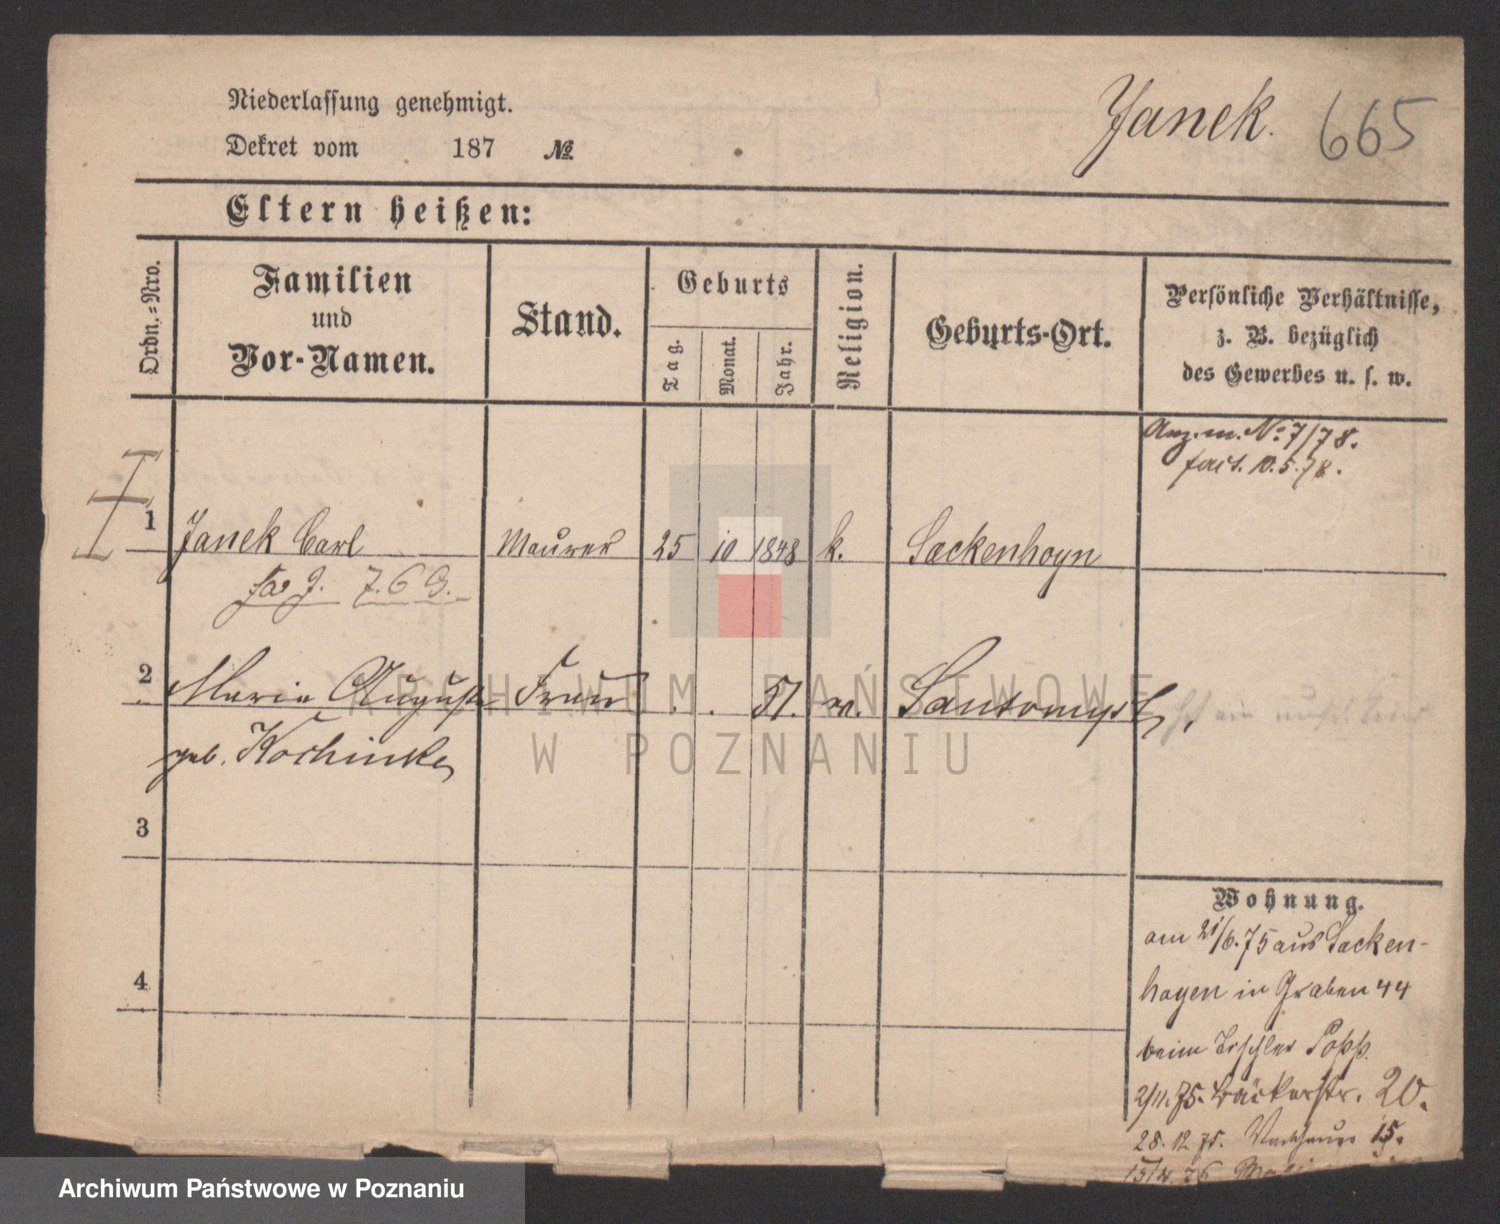 Niederlassung genehmigt.
Dekret vom 187 №
Janek. 665
Eltern heißen:
Ordn.-Nro.
Familien
und
Vor-Namen.
Stand.
Geburts
Tag.
Monat.
Jahr.
Religion.
Geburts-Ort.
Persönliche Verhältnisse,
z. B. bezüglich
des Gewerbes u. s. w.
Anz. m. No 7/78.
10.5.78.
1 Janek Carl Maurer 25 10 1848 k. Sackenhoyn
2 Marie Auguste Frau . . 51. Santomysl,
geb. Koschinke
3
4
Wohnung.
am 21/6.75 aus Sacken-
hagen in Graben 44
beim Tischler Popp.
2/11.75. Bäckerstr. 20.
28.12.75. 15.
ARCHIWUM PAŃSTWOWE
W POZNANIU
Archiwum Państwowe w Poznaniu